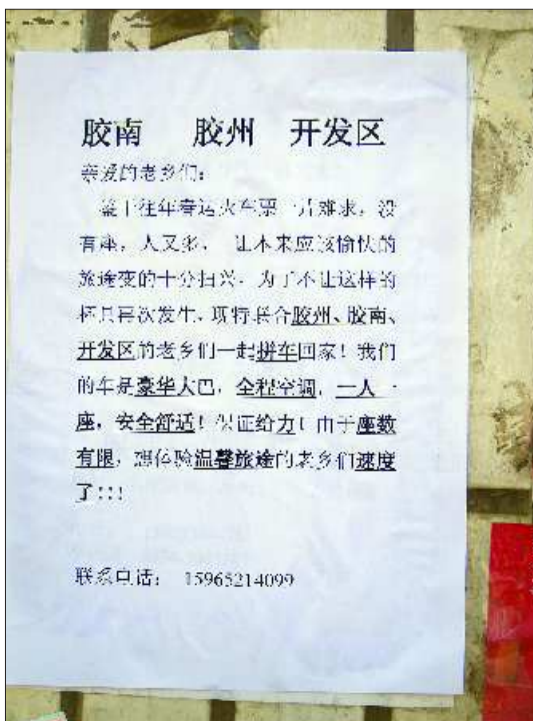 胶南 胶州 开发区
亲爱的老乡们：
鉴于往年春运火车票一片难求，没
有座，人又多， 让本来应该愉快的
旅途变的十分扫兴，为了不让这样的
杯具再次发生，现特联合胶州、胶南、
开发区的老乡们一起拼车回家！我们
的车是豪华大巴，全程空调，一人一
座，安全舒适！保证给力！由于座数
有限，想体验温馨旅途的老乡们速度
了！！！
联系电话： 15965214099